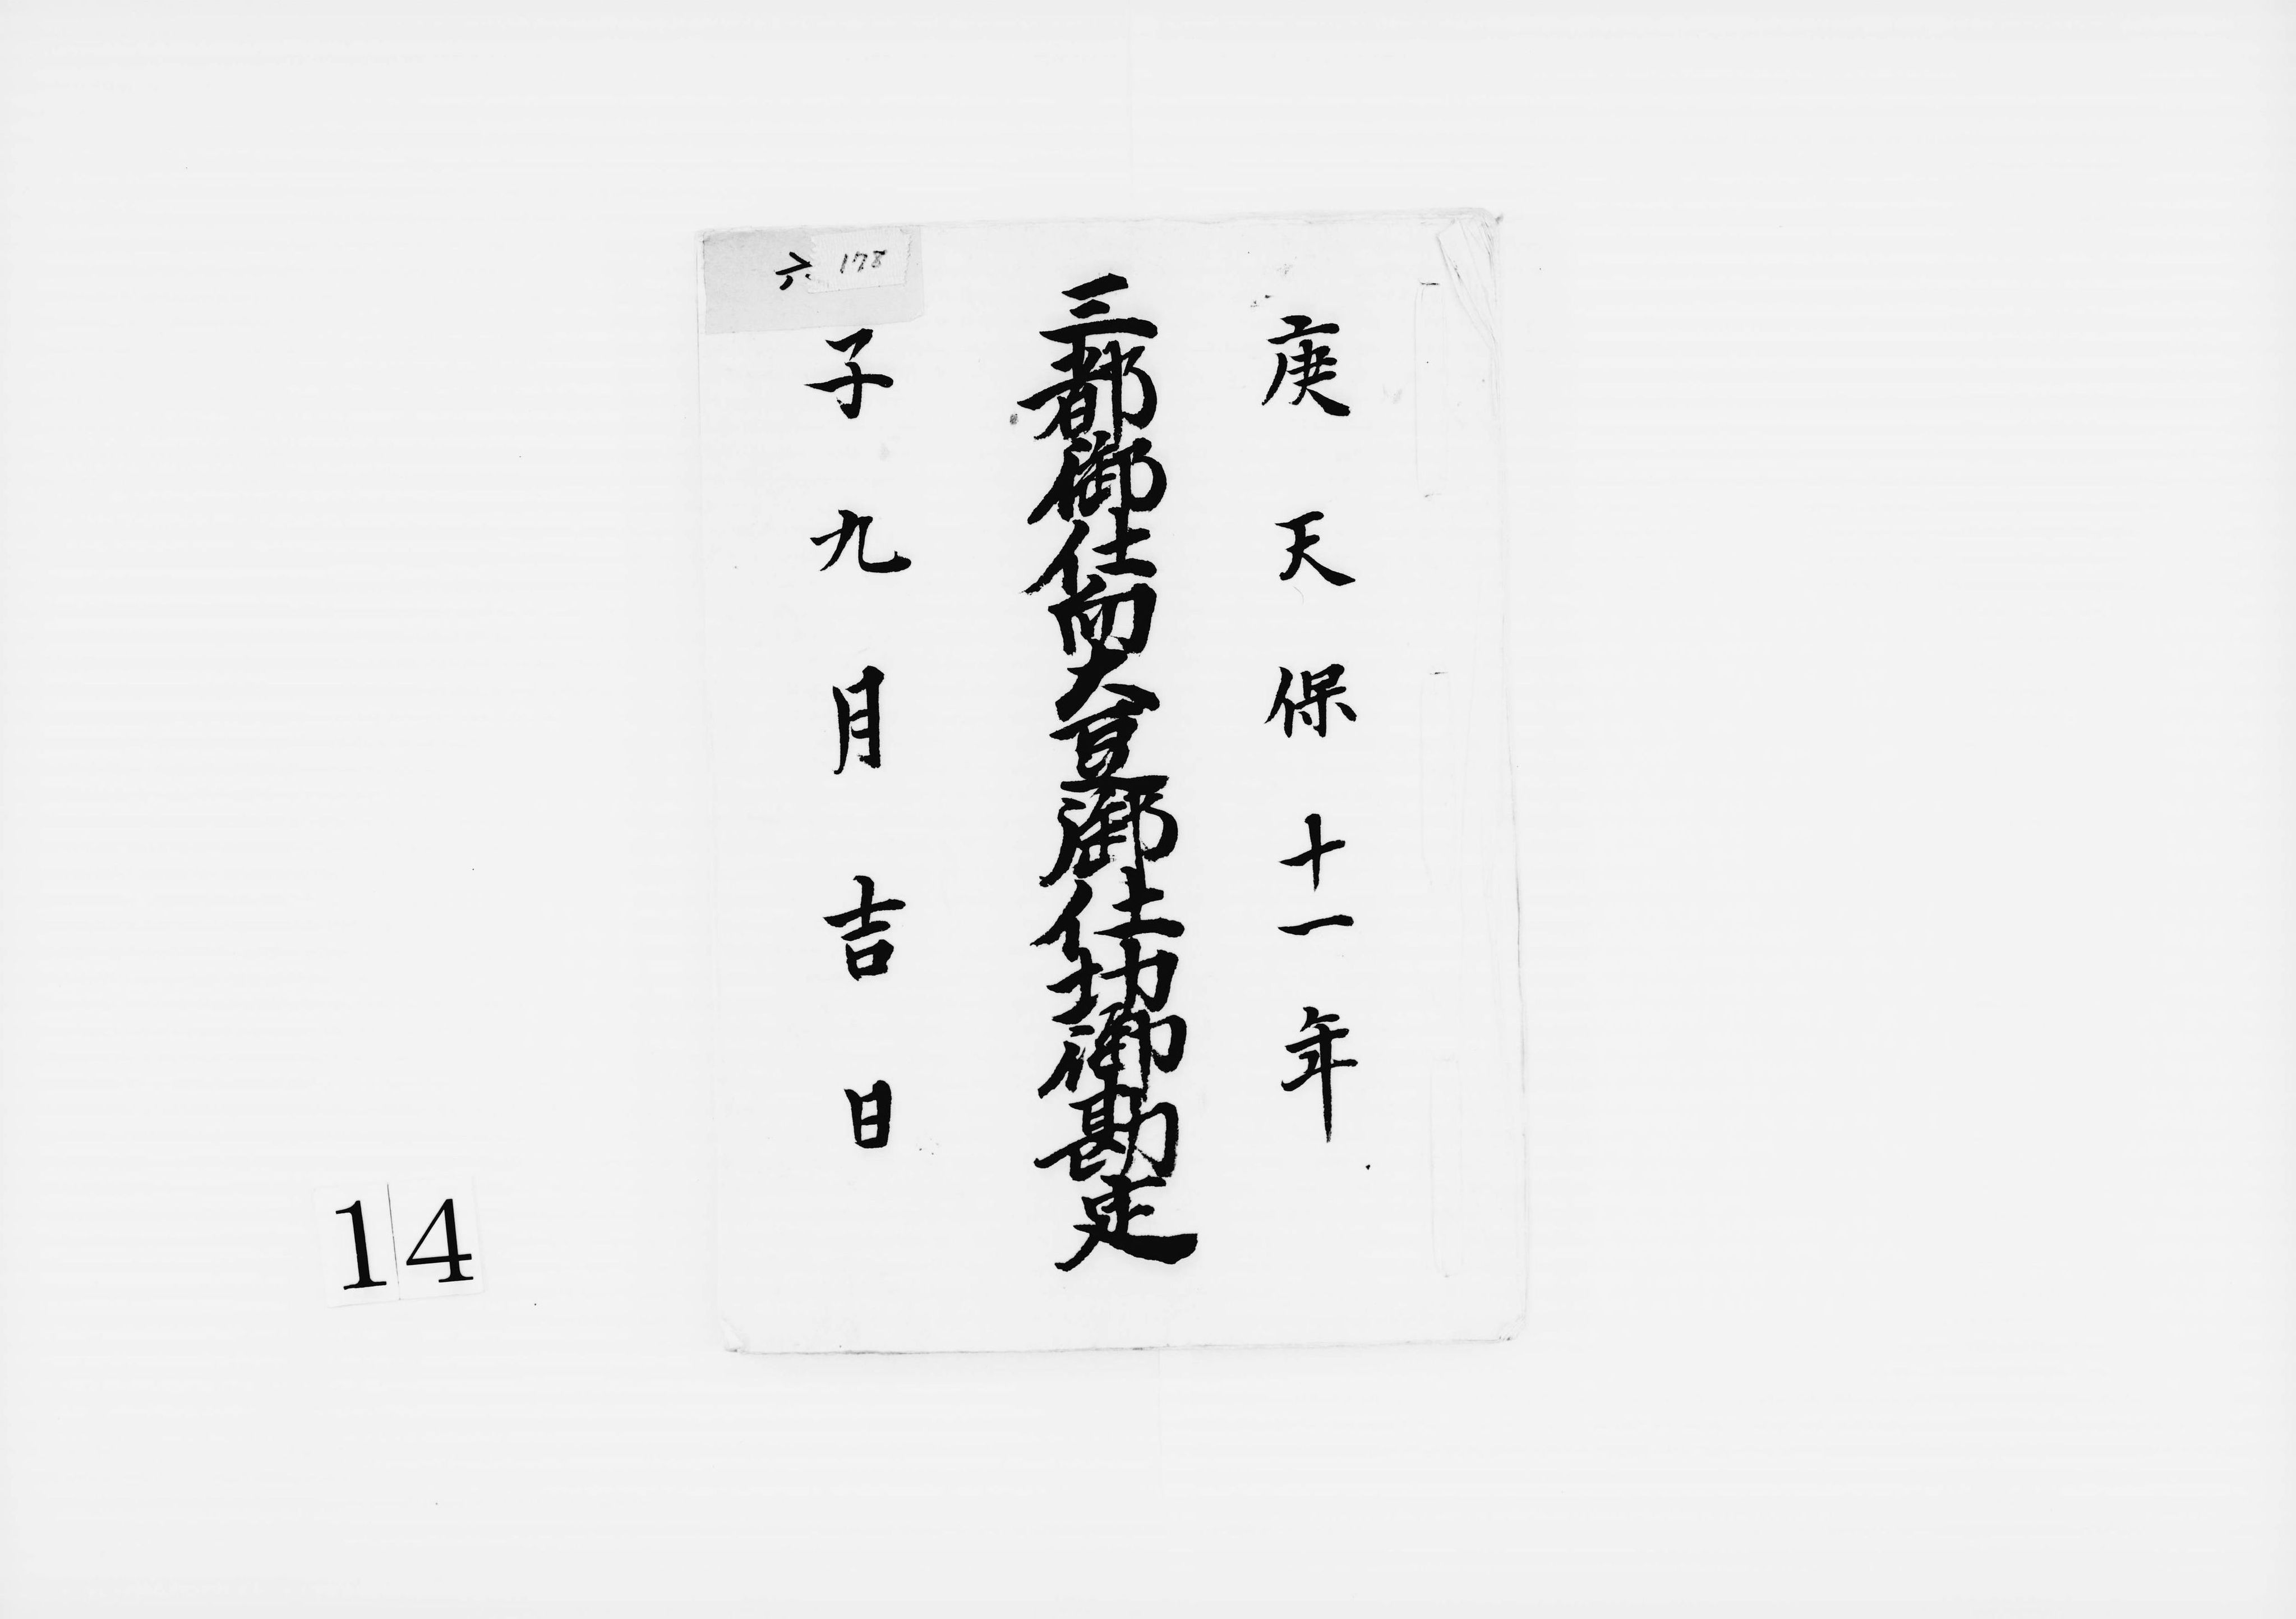 庚天保十一年
三都御仕向大意御仕切御勘定
子九月吉日
六 178
14